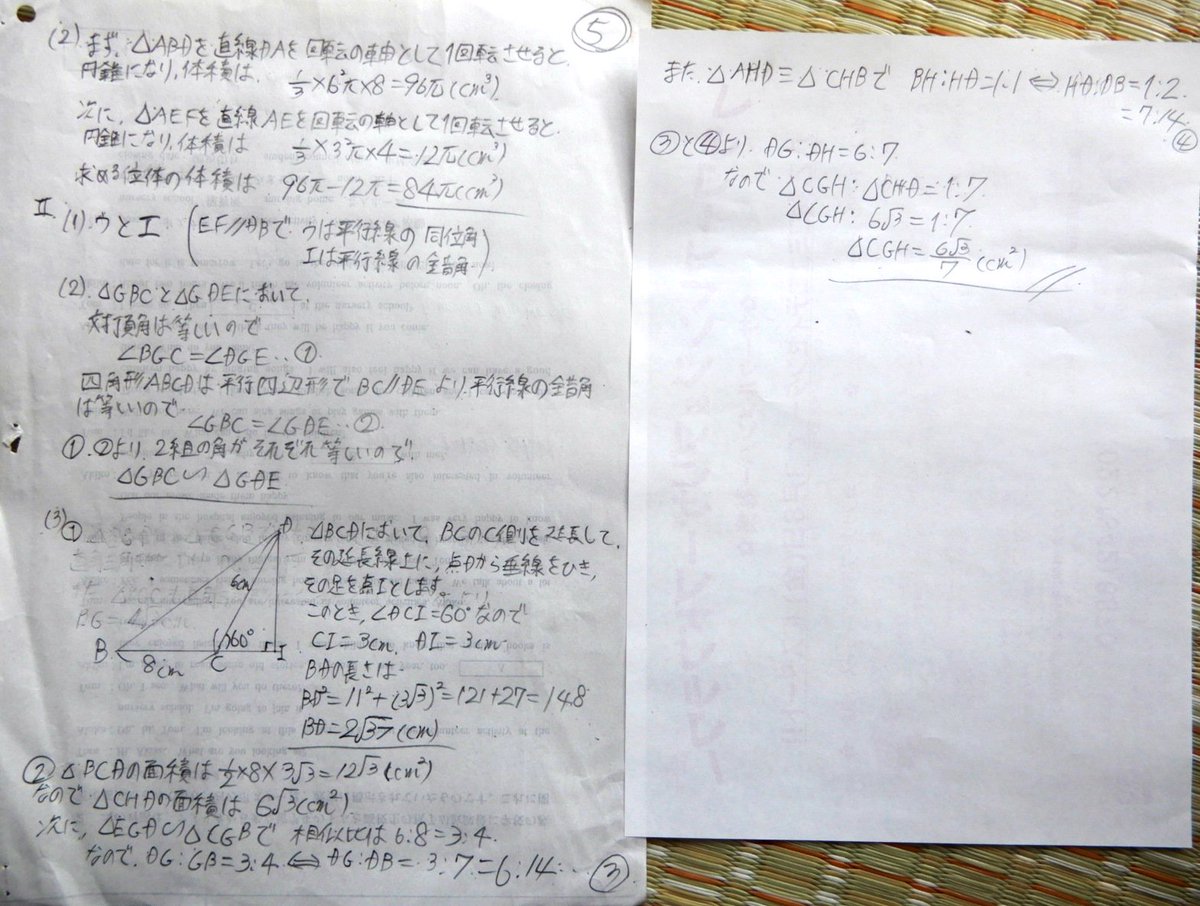 ⑤
(2) まず、△ABDを直線DAを回転の軸として1回転させると、
円錐になり、体積は、 1/3×6²π×8=96π(cm³)
次に、△AEFを直線AEを回転の軸として1回転させると、
円錐になり、体積は 1/3×3²π×4=12π(cm³)
求める立体の体積は 96π-12π=84π(cm³)
Ⅱ (1).ウとエ (EF//DBで ウは平行線の同位角
エは平行線の錯角)
(2). △GBCと△GDEにおいて、
対頂角は等しいので
∠BGC=∠DGE‥①
四角形ABCDは平行四辺形で BC//DEより平行線の錯角
は等しいので
∠GBC=∠GDE‥②
①.②より、2組の角がそれぞれ等しいので、
△GBC∽△GDE
(3) ① △BCDにおいて、BCのC側を延長して、
その延長線上に、点Dから垂線をひき、
その足を点Iとします。
このとき、∠DCI=60°なので
CI=3cm DI=3cm
BDの長さは
BD²=11²+(3√3)²=121+27=148
BD=2√37(cm)
D
6cm
60°
B
8cm
C
I
② △BCDの面積は1/2×8×3√3=12√3(cm²)
なので△CHDの面積は 6√3(cm²)
次に、△EGD∽△CGBで 相似比は6:8=3:4.
なので、DG:GB=3:4 ⇔ DG:DB=3:7=6:14‥③
また、△AHD≡△CHBで BH:HD=1:1 ⇔ HD:DB=1:2
=7:14‥④
③と④より DG:DH=6:7
なので △CGH:△CHD=1:7
△CGH:6√3=1:7
△CGH=6√3/7(cm²)